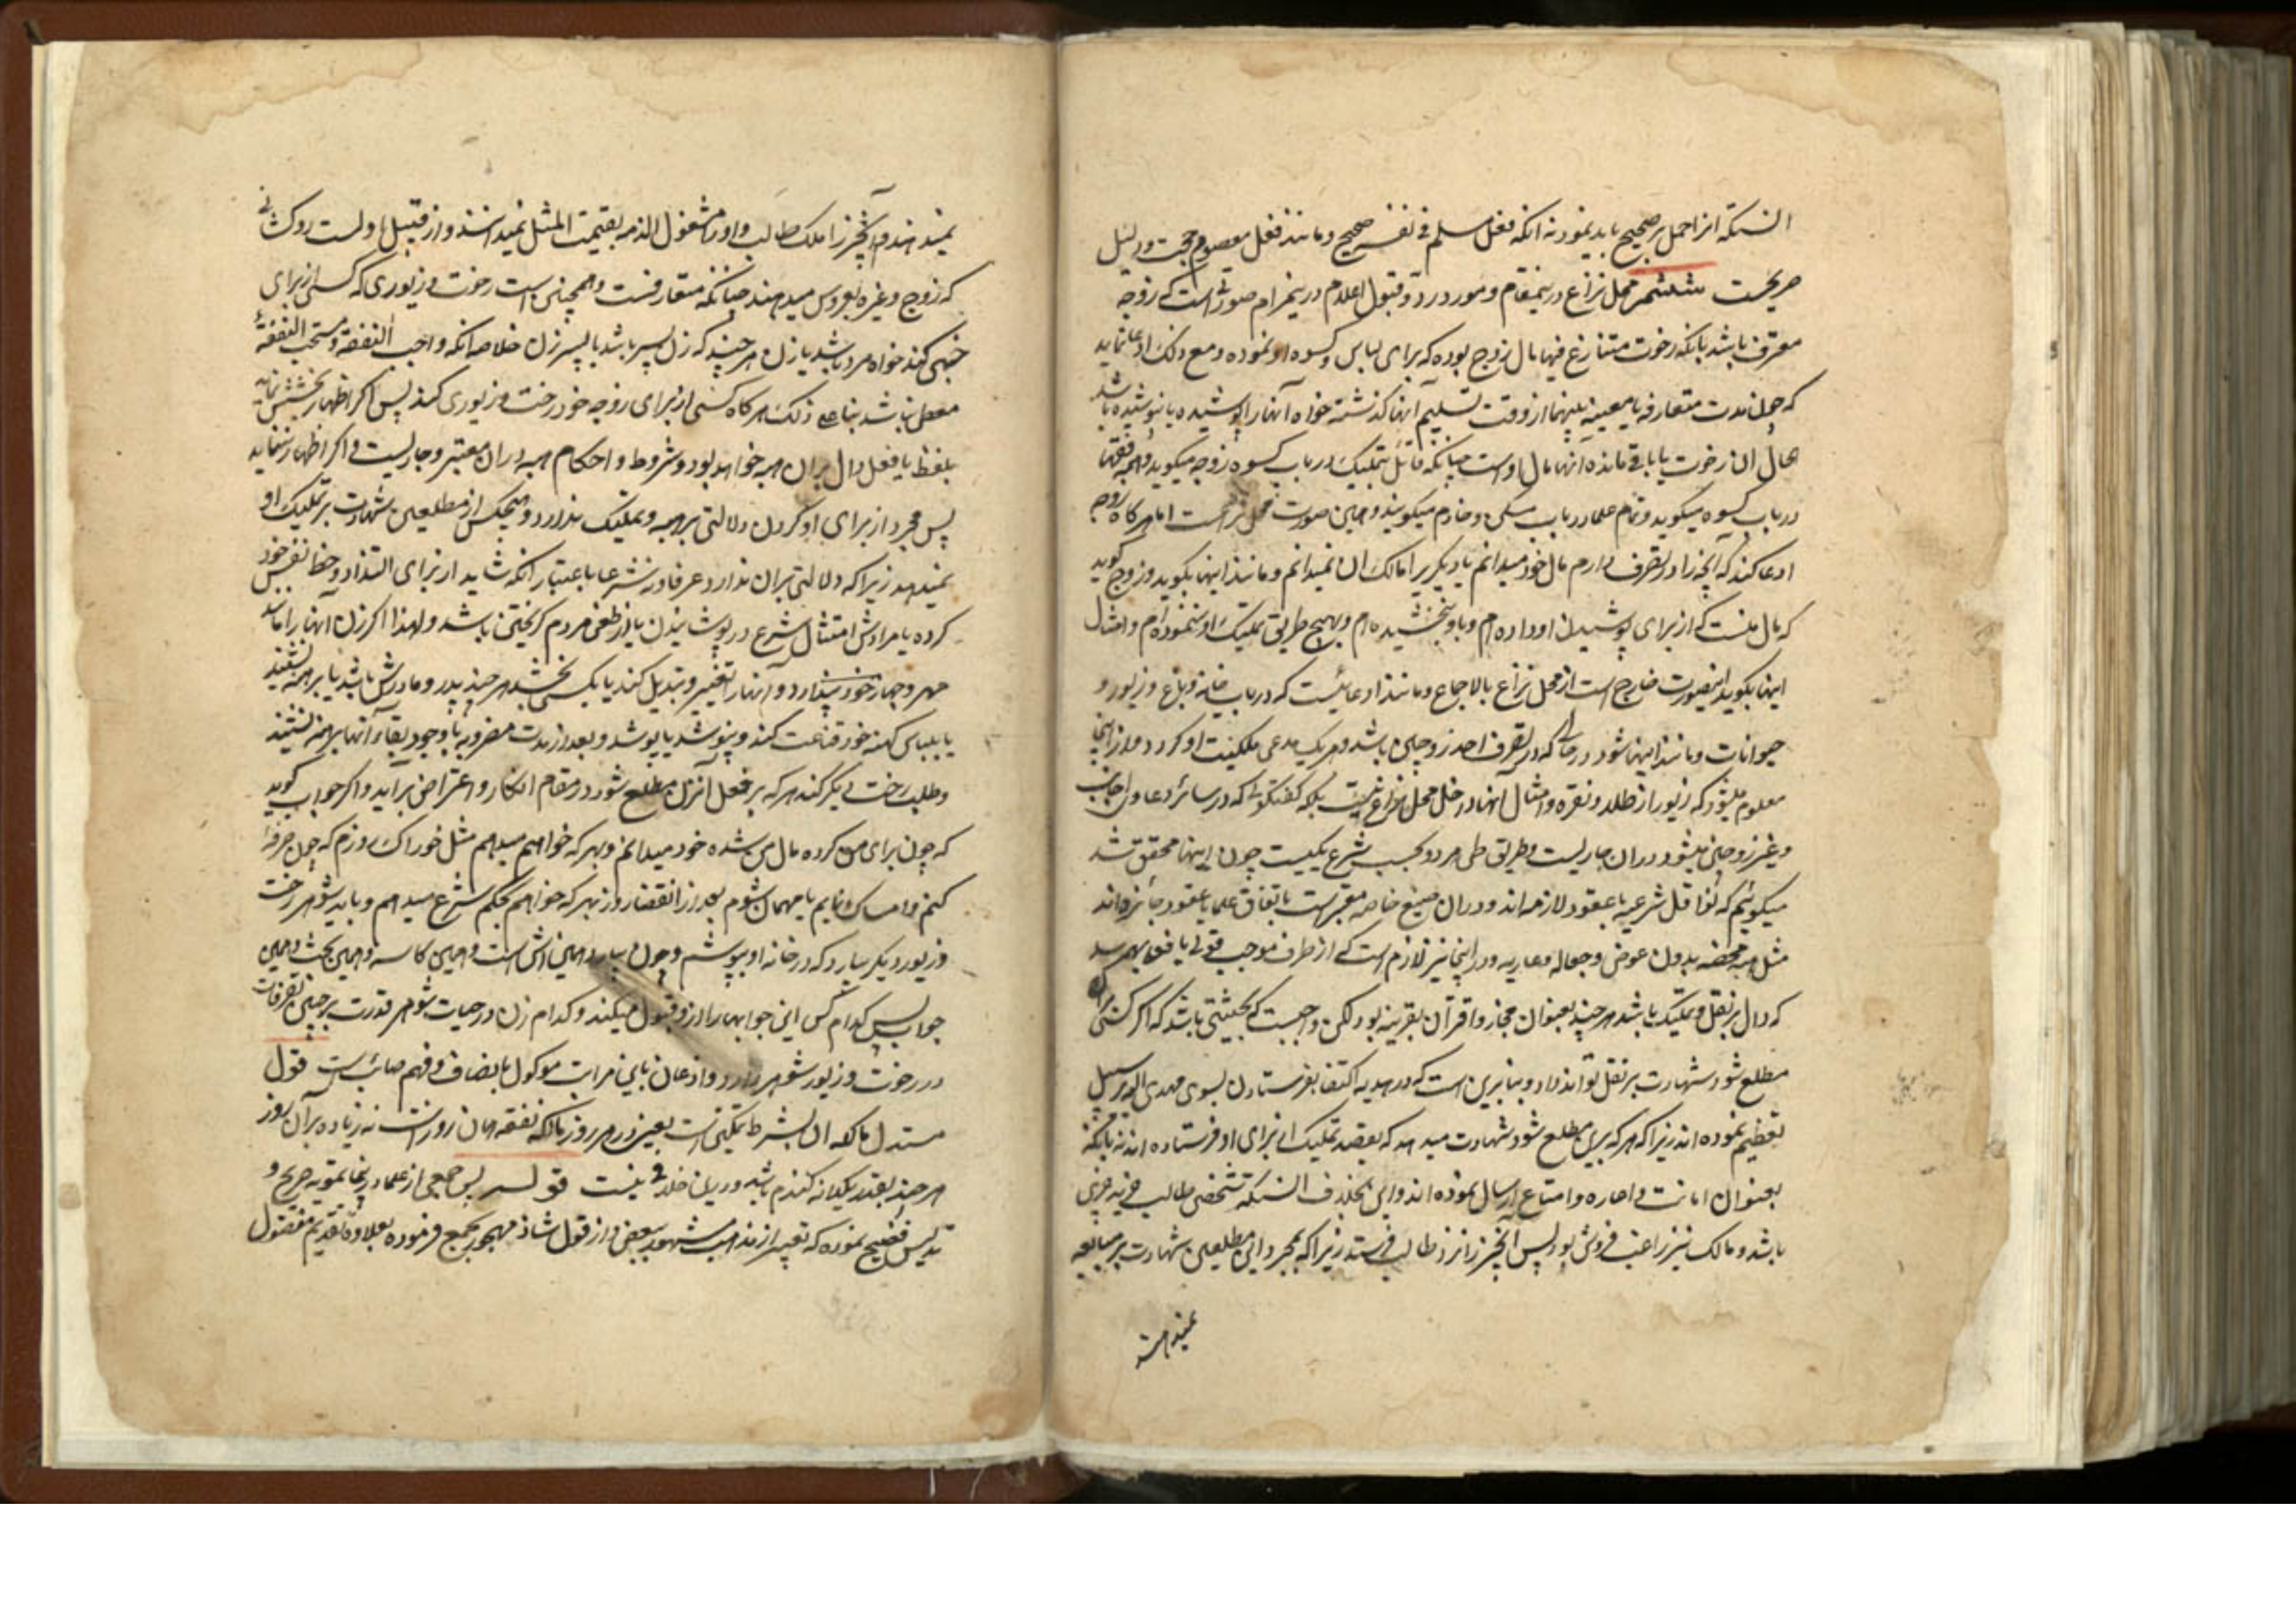 النکه انرا حمل بر صحیح باید نمود نه انکه فعل مسلم فی نفسه صحیح و مانند فعل معصوم حجت و دلیل
صریحست ششم محل نزاع درینمقام و مورد رد و قبول اعلام درینمرام صورتی است که زوجه
معترف باشد بانکه رخوت متنازع فیها مال زوج بوده که برای لباس و کسوه او نموده و مع ذلک ادعا نماید
که چون مدت متعارفه یا معینه بینهما از وقت تسلیم آنها کذشته خواه آنها را پوشیده یا نپوشیده باشد
حال ان رخوت یا باقی مانده آنها مال اوست چنانکه قائل بتملیک در باب کسوه زوجه میکوید و همه فقها
در باب کسوه میکوید و تمام علما در باب مسکن و خادم میکویند و همین صورت محل نزاعست اما هر کاه زوجه
ادعا کند که آنچه را در تصرف دارم مال خود میدانم یا دیکریرا مالک ان نمیدانم و مانند اینها بکوید و زوج کوید
که مال منست که از برای پوشیدن او داده ام و باو نبخشیده ام و بهیچ طریقی تملیک او ننموده ام و امثال
اینها بکوید اینصورت خارج است از محل نزاع بالاجماع و مانند ادعائیست که در باب خانه و باغ و زیور و
حیوانات و مانند اینها شود در حالی که در تصرف احد زوجین باشد و هر یک مدعی ملکیت او کردد و از اینجا
معلوم میشود که زیور از طلا و نقره و امثال آنها داخل محل نزاع نیست بلکه کفتکوئی که در سائر دعاوی اجانب
و غیر زوجین میشود در ان جاریست و طریق طی هر دو بحسب شرع یکیست چون اینها محقق شد
میکوئیم که نواقل شرعیه یا عقود لازمه اند و در ان صیغ خاصه معتبرست باتفاق علما یا عقود جائزه اند
مثل هبه محضه بدون عوض و جعاله و عاریه و در اینجا نیز لازم است که از طرف موجب قولی یا فعلی بهم رسد
که دال بر نقل و تملیک باشد هر چند بعنوان مجاز و اقتران بقرینه بود لکن واجبست که بحیثیتی باشد که اکر کسی بران
مطلع شود شهادت بر نقل تواند داد و بنابرین است که در هدیه اکتفا بفرستادن بسوی مهدی الیه بر سبیل
تعظیم نموده اند زیرا که هر که برین مطلع شود شهادت میدهد که بقصد تملیک از برای او فرستاده اند نه بانکه
بعنوان امانت و اجاره و امتاع ارسال نموده اند و این بخلاف انستکه شخصی طالب خریدن چیزی
باشد و مالک نیز راغب فروش بود پس آنچیز را نزد طالب فرستد زیرا که بمجرد این مطلعین شهادت بر مبایعه
نمیدهند
نمیدهند و آنچیز را ملک طالب و او را مشغول الذمه بقیمت المثل نمیدانند و از قبیل اولست روکشائی
که زوج و غیره بعروس میدهند چنانکه متعارفست و همچنین است رخوت و زیوری که کسی از برای
اجنبی کند خواه مرد باشد یا زن هر چند که زن پسر باشد یا پسر زن خلاصه انکه واجب النفقه و مستحب النفقه
معطی نباشد بناء علی ذلک هر کاه کسی از برای زوجه خود رخت و زیوری کند پس اکر اظهار بخشش نماید
بلفظ یا فعل دال بران هبه خواهد بود و شروط و احکام هبه در ان معتبر و جاریست و اکر اظهار ننماید
پس مجرد از برای او کردن دلالتی بر هبه و تملیک ندارد و هیچکس از مطلعین شهادت بر تملیک او
نمیدهد زیرا که دلالتی بران ندارد عرفا و نه شرعا باعتبار انکه شاید از برای التذاذ و حظ نفس خود
کرده یا مرادش امتثال شرع در پوشانیدن یا از طعن مردم کریختن باشد و لهذا اکر زن آنها را مانند
مهر و جهاز خود پندارد و آنها را تغییر و تبدیل کند یا بکسی بخشد هر چند پدر و مادرش باشد یا برهنه نشیند
یا بلباس کهنه خود قناعت کند و نپوشد یا پوشد و بعد از مدت مضروبه با وجود بقاء آنها برهنه نشیند
و طلب رخت دیکر کند هر که بر فعل آنزن مطلع شود در مقام انکار و اعتراض برآید و اکر جواب کوید
که چون برای من کرده مال من شده خود میدانم و بهر که خواهم میدهم مثل خوراک روزم که چون صرفه
کنم و امساک نمایم یا مهمان شوم بعد از انقضاء روز بهر که خواهم بحکم شرع میدهم و باید شوهر رخت
و زیور دیکر بیارد که در خانه او بپوشم و چون بیارد همین اش است و همین کاسه و همین بحث و همین
جواب پس کدام کس این جوابها را از او قبول میکند و کدام زن در حیات شوهر قدرت بر چنین تصرفات
در رخوت و زیور شوهر دارد و اذعان باین مراتب موکول بانصاف و فهم صائبست قول
مستدل مالکه ان بشرط تمکین است یعنی در هر روز مالکه نفقه همان روز است نه زیاده بر آن روز
هر چند بقدر یکدانه کندم باشد و درین خلافی نیست قوله پس جمعی از علما در اینجا تمویه صریح و
تدلیس فضیح نموده که تعبیر از مذهب مشهور ببعض و از قول شاذ مهجور بجمع فرموده بعلاوه تقدیم مفضول